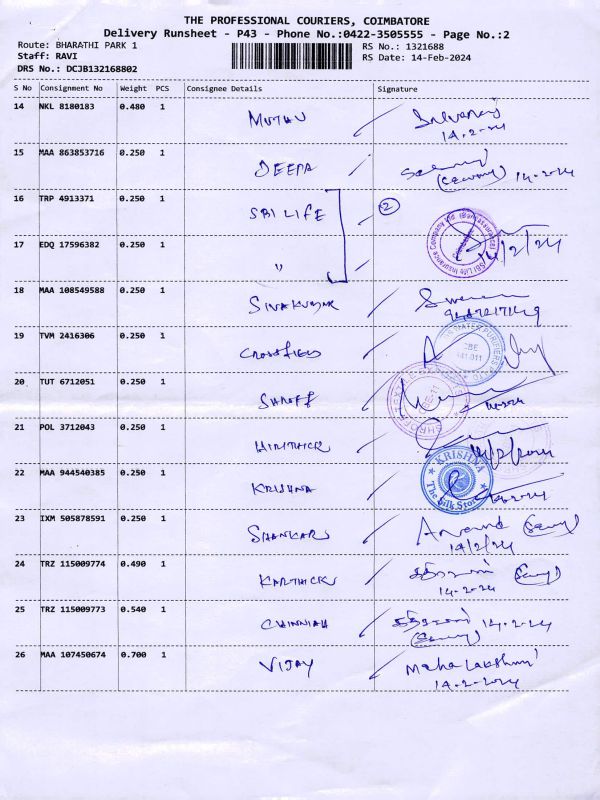 THE PROFESSIONAL COURIERS, COIMBATORE
Delivery Runsheet - P43 - Phone No.:0422-3505555 - Page No.:2
Route: BHARATHI PARK 1 RS No.: 1321688
Staff: RAVI RS Date: 14-Feb-2024
DRS No.: DCJB132168802
S No Consignment No Weight PCS Consignee Details Signature
14 NKL 8180183 0.480 1 MUTHU
14.2.24
15 MAA 863853716 0.250 1 DEEPA
14.2.24
16 TRP 4913371 0.250 1 SBI LIFE 2
17 EDQ 17596382 0.250 1 " 14/2/24
18 MAA 108549588 0.250 1 SIVAKUMAR
19 TVM 2416306 0.250 1 CROSSFIELD
20 TUT 6712051 0.250 1 SHROFF
21 POL 3712043 0.250 1
22 MAA 944540385 0.250 1 KRISHNA KRISHNA
The Silk Store
23 IXM 505878591 0.250 1 SHANKAR Anand
14/2/24
24 TRZ 115009774 0.490 1 KARTHICK
14.2.24
25 TRZ 115009773 0.540 1 CHINNIAH 14.2.24
26 MAA 107450674 0.700 1 VIJAY Maha Lakshmi
14.2.2024